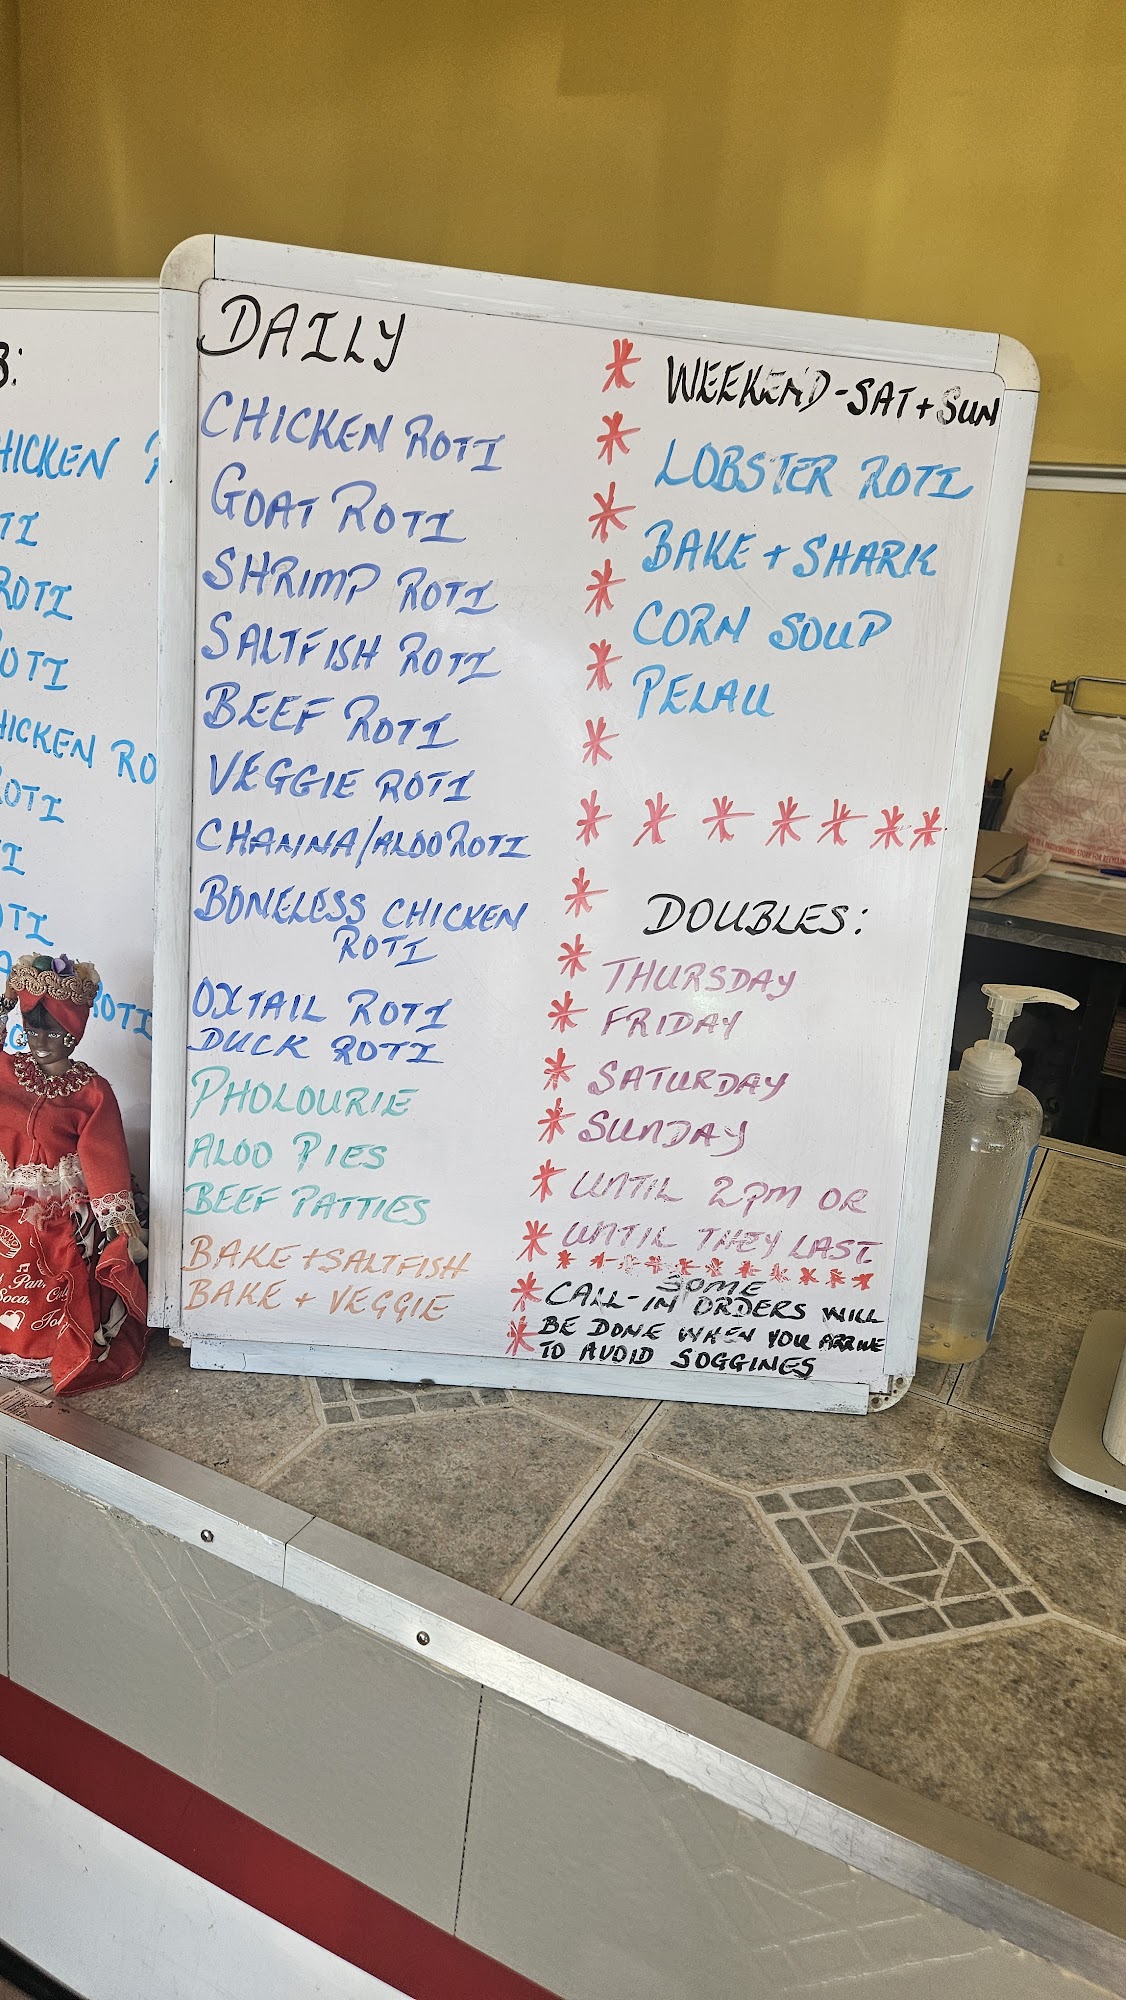 B:
HICKEN
TI
ROTI
OTI
HICKEN RO
ROTI
I
OTI
ROTI
DAILY
CHICKEN ROTI
GOAT ROTI
SHRIMP ROTI
SALTFISH ROTI
BEEF ROTI
VEGGIE ROTI
CHANNA/ALOO ROTI
BONELESS CHICKEN
ROTI
OXTAIL ROTI
DUCK ROTI
PHOLOURIE
ALOO PIES
BEEF PATTIES
BAKE + SALTFISH
BAKE + VEGGIE
* WEEKEND - SAT + SUN
* LOBSTER ROTI
* BAKE + SHARK
* CORN SOUP
* PELAU
*
* * * * * * *
* DOUBLES:
* THURSDAY
* FRIDAY
* SATURDAY
* SUNDAY
* UNTIL 2PM OR
* UNTIL THEY LAST
* * * * * * * * * *
SOME
* CALL-IN ORDERS WILL
* BE DONE WHEN YOU ARRIVE
TO AVOID SOGGINES
Pan,
Soca,